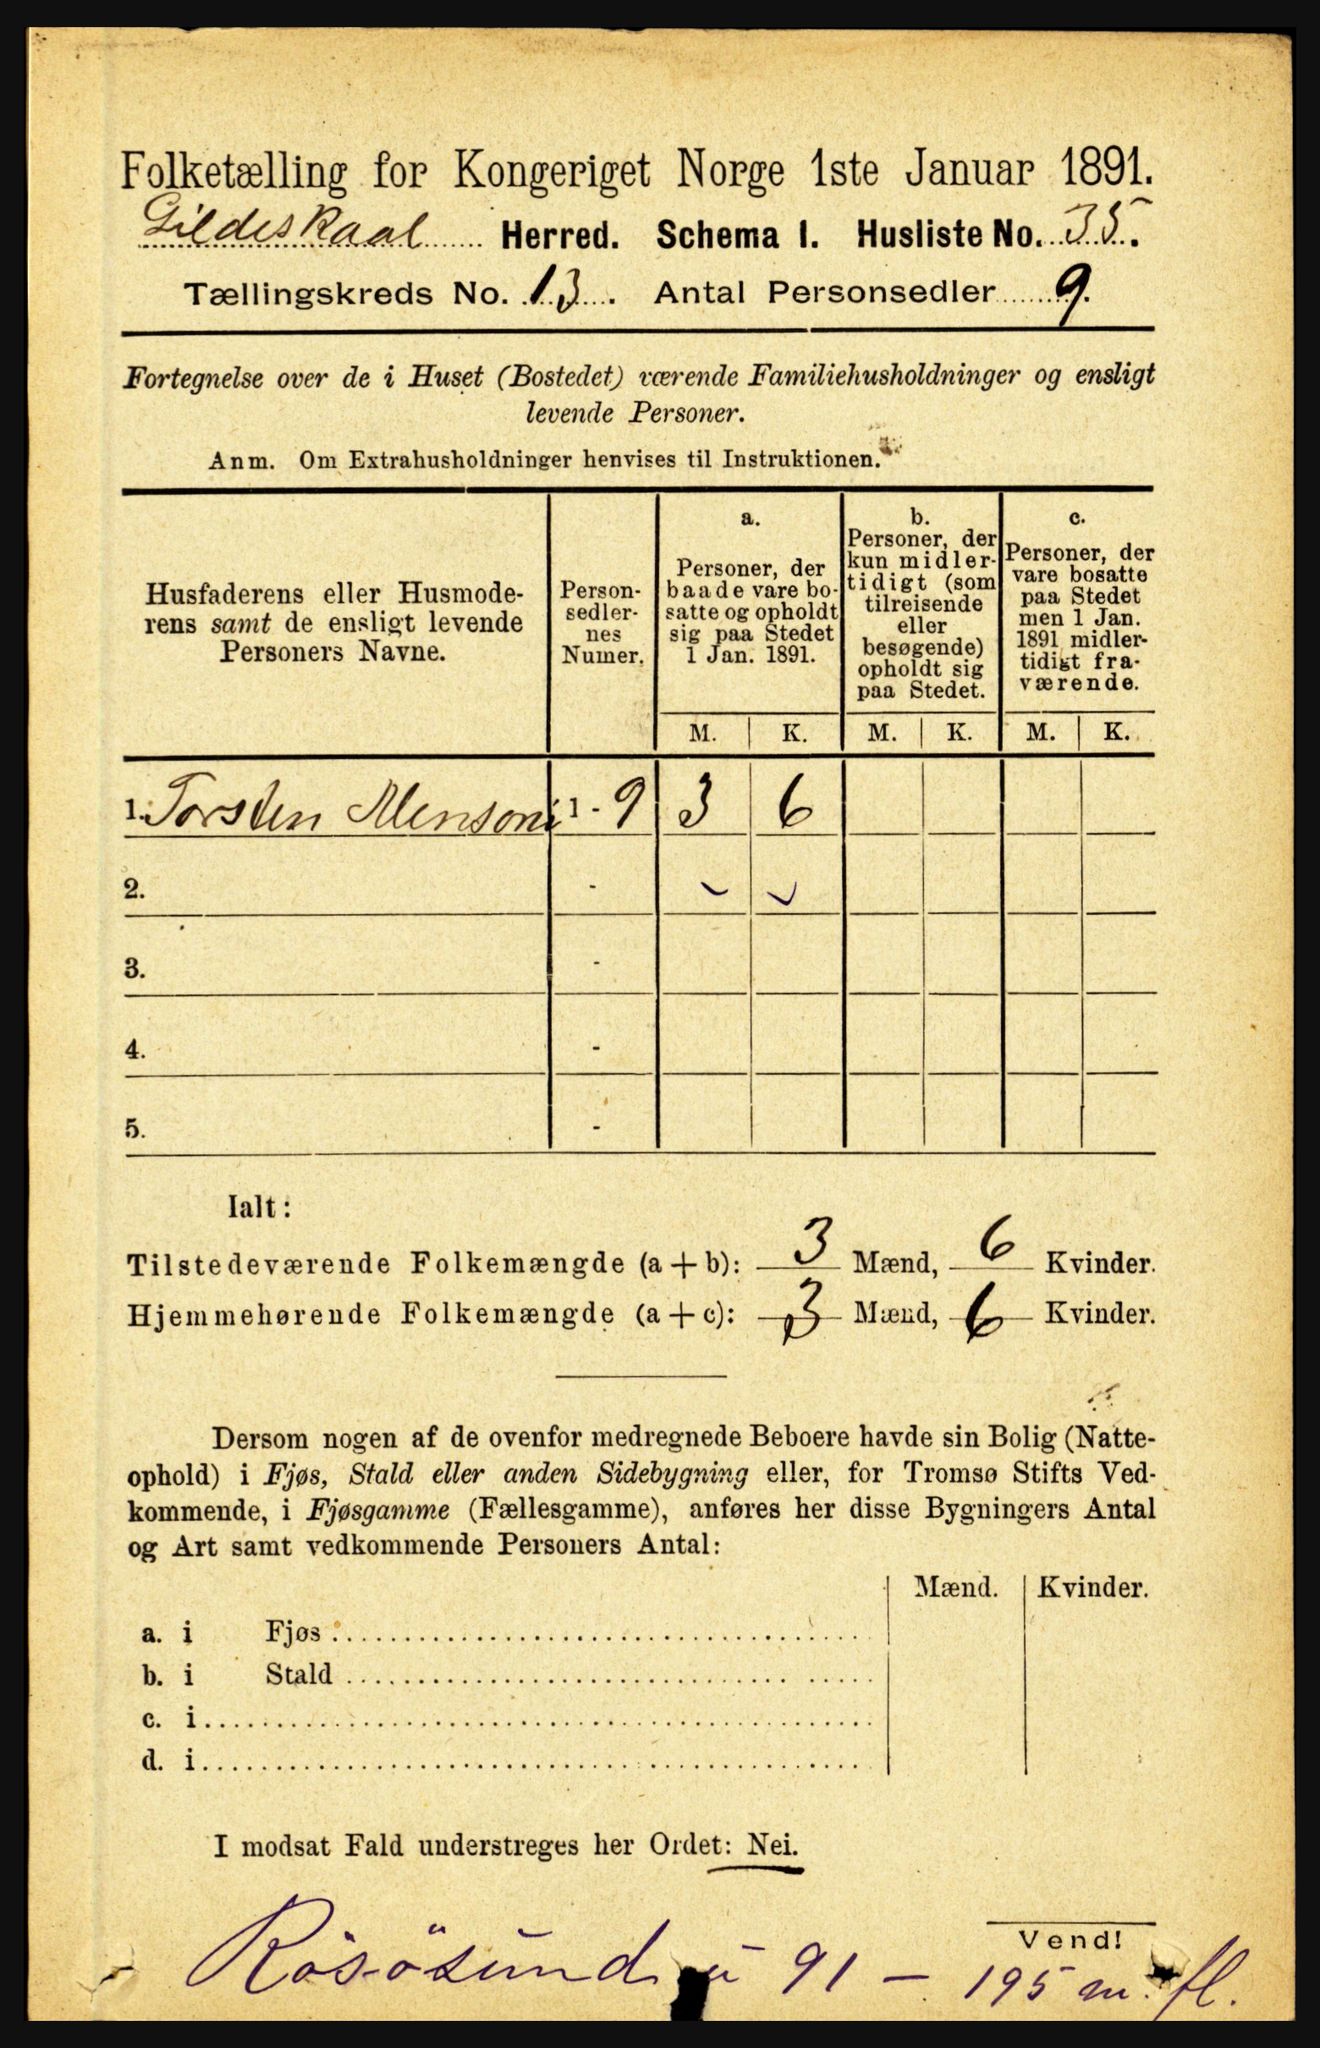 Folketælling for Kongeriget Norge 1ste Januar 1891.
Gildeskaal Herred. Schema I. Husliste No. 35.
Tællingskreds No. 13. Antal Personsedler 9.
Fortegnelse over de i Huset (Bostedet) værende Familiehusholdninger og ensligt
levende Personer.
Anm. Om Extrahusholdninger henvises til Instruktionen.
Husfaderens eller Husmode-
rens samt de ensligt levende
Personers Navne.
Person-
sedler-
nes
Numer.
a.
Personer, der
baade vare bo-
satte og opholdt
sig paa Stedet
1 Jan. 1891.
b.
Personer, der
kun midler-
tidigt (som
tilreisende
eller
besøgende)
opholdt sig
paa Stedet.
c.
Personer, der
vare bosatte
paa Stedet
men 1 Jan.
1891 midler-
tidigt fra-
værende.
M. K. M. K. M. K.
1. Torsten 1 - 9 3 6
2. -
3. -
4. -
5. -
Ialt:
Tilstedeværende Folkemængde (a + b): 3 Mænd, 6 Kvinder.
Hjemmehørende Folkemængde (a + c): 3 Mænd, 6 Kvinder.
Dersom nogen af de ovenfor medregnede Beboere havde sin Bolig (Natte-
ophold) i Fjøs, Stald eller anden Sidebygning eller, for Tromsø Stifts Ved-
kommende, i Fjøsgamme (Fællesgamme), anføres her disse Bygningers Antal
og Art samt vedkommende Personers Antal:
Mænd. Kvinder.
a. i Fjøs
b. i Stald
c. i
d. i
I modsat Fald understreges her Ordet: Nei.
Vend!
Rösösund 91 - 195 m. fl.